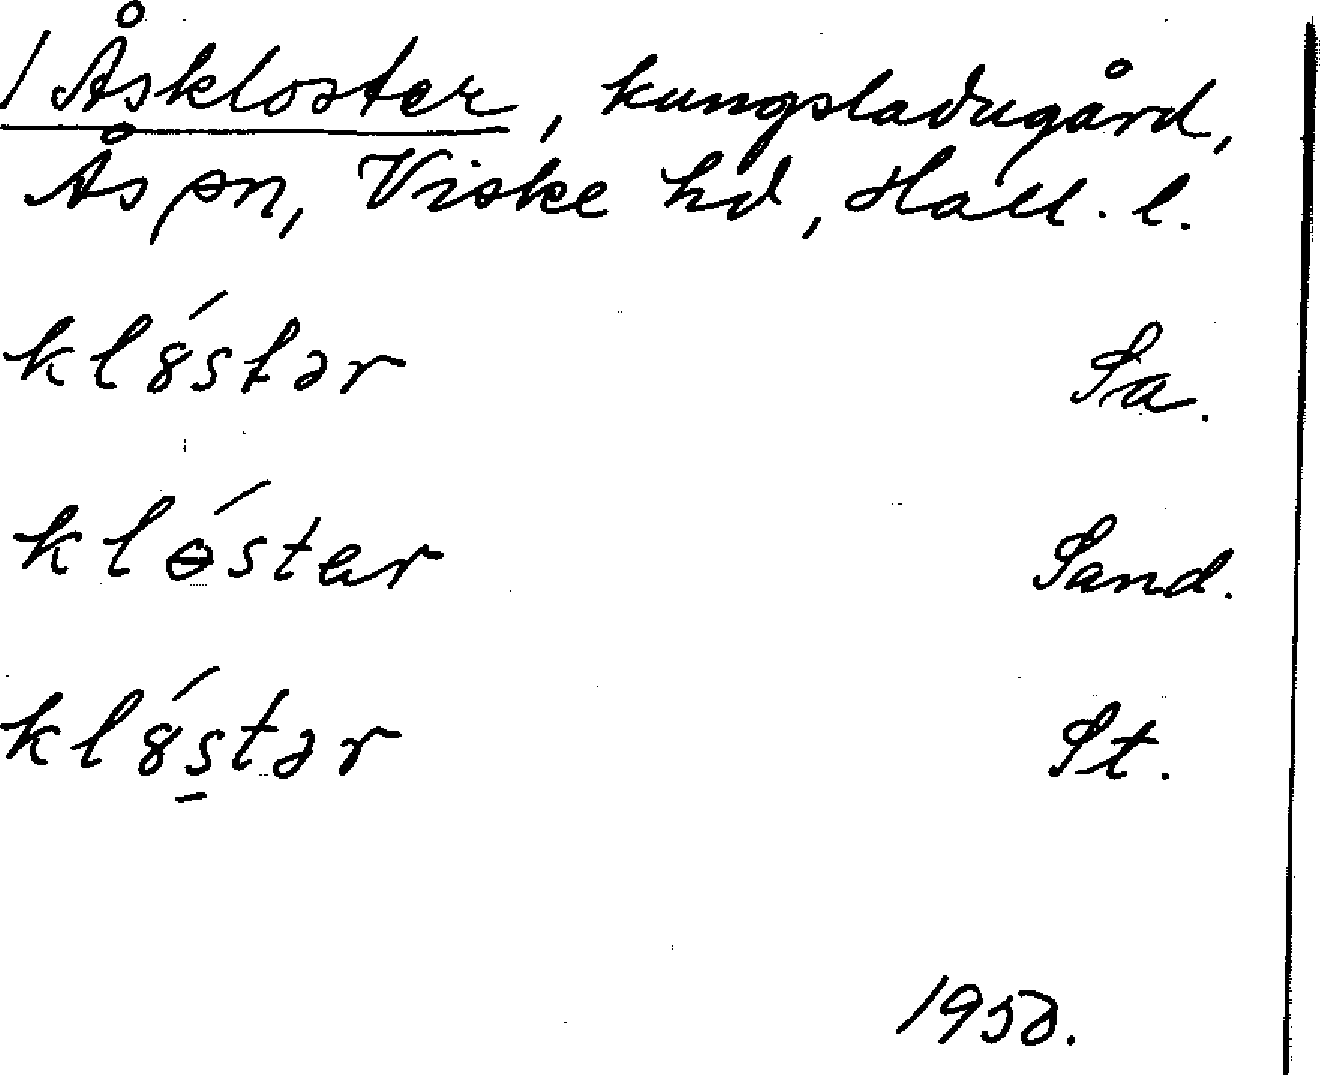 1 Åskloster, kungsladugård,
Ås sn, Viske hd, Hall. l.
kl8́stər Sa.
klɵ́stər Sand.
kl8́s̠tər St.
1950.